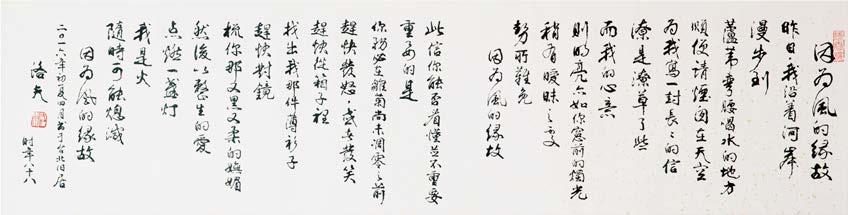 因为风的缘故
昨日我沿着河岸
漫步到
蘆葦弯腰喝水的地方
顺便请煙囱在天空
为我寫一封長長的信
潦是潦草了些
而我的心意
则明亮亦如你窓前的燭光
稍有曖昧之处
勢所難免
因为風的缘故
此信你能否看懂並不重要
重要的是
你務必在雛菊尚未凋零之前
趕快發怒，或者發笑
趕快從箱子裡
找出我那件薄衫子
趕快對鏡
梳你那又黑又柔的嫵媚
然後以整生的愛
点燃一盞灯
我是火
隨時可能熄滅
因为風的缘故
二〇一六年初夏四月書于台北旧居
洛夫
时年八十八